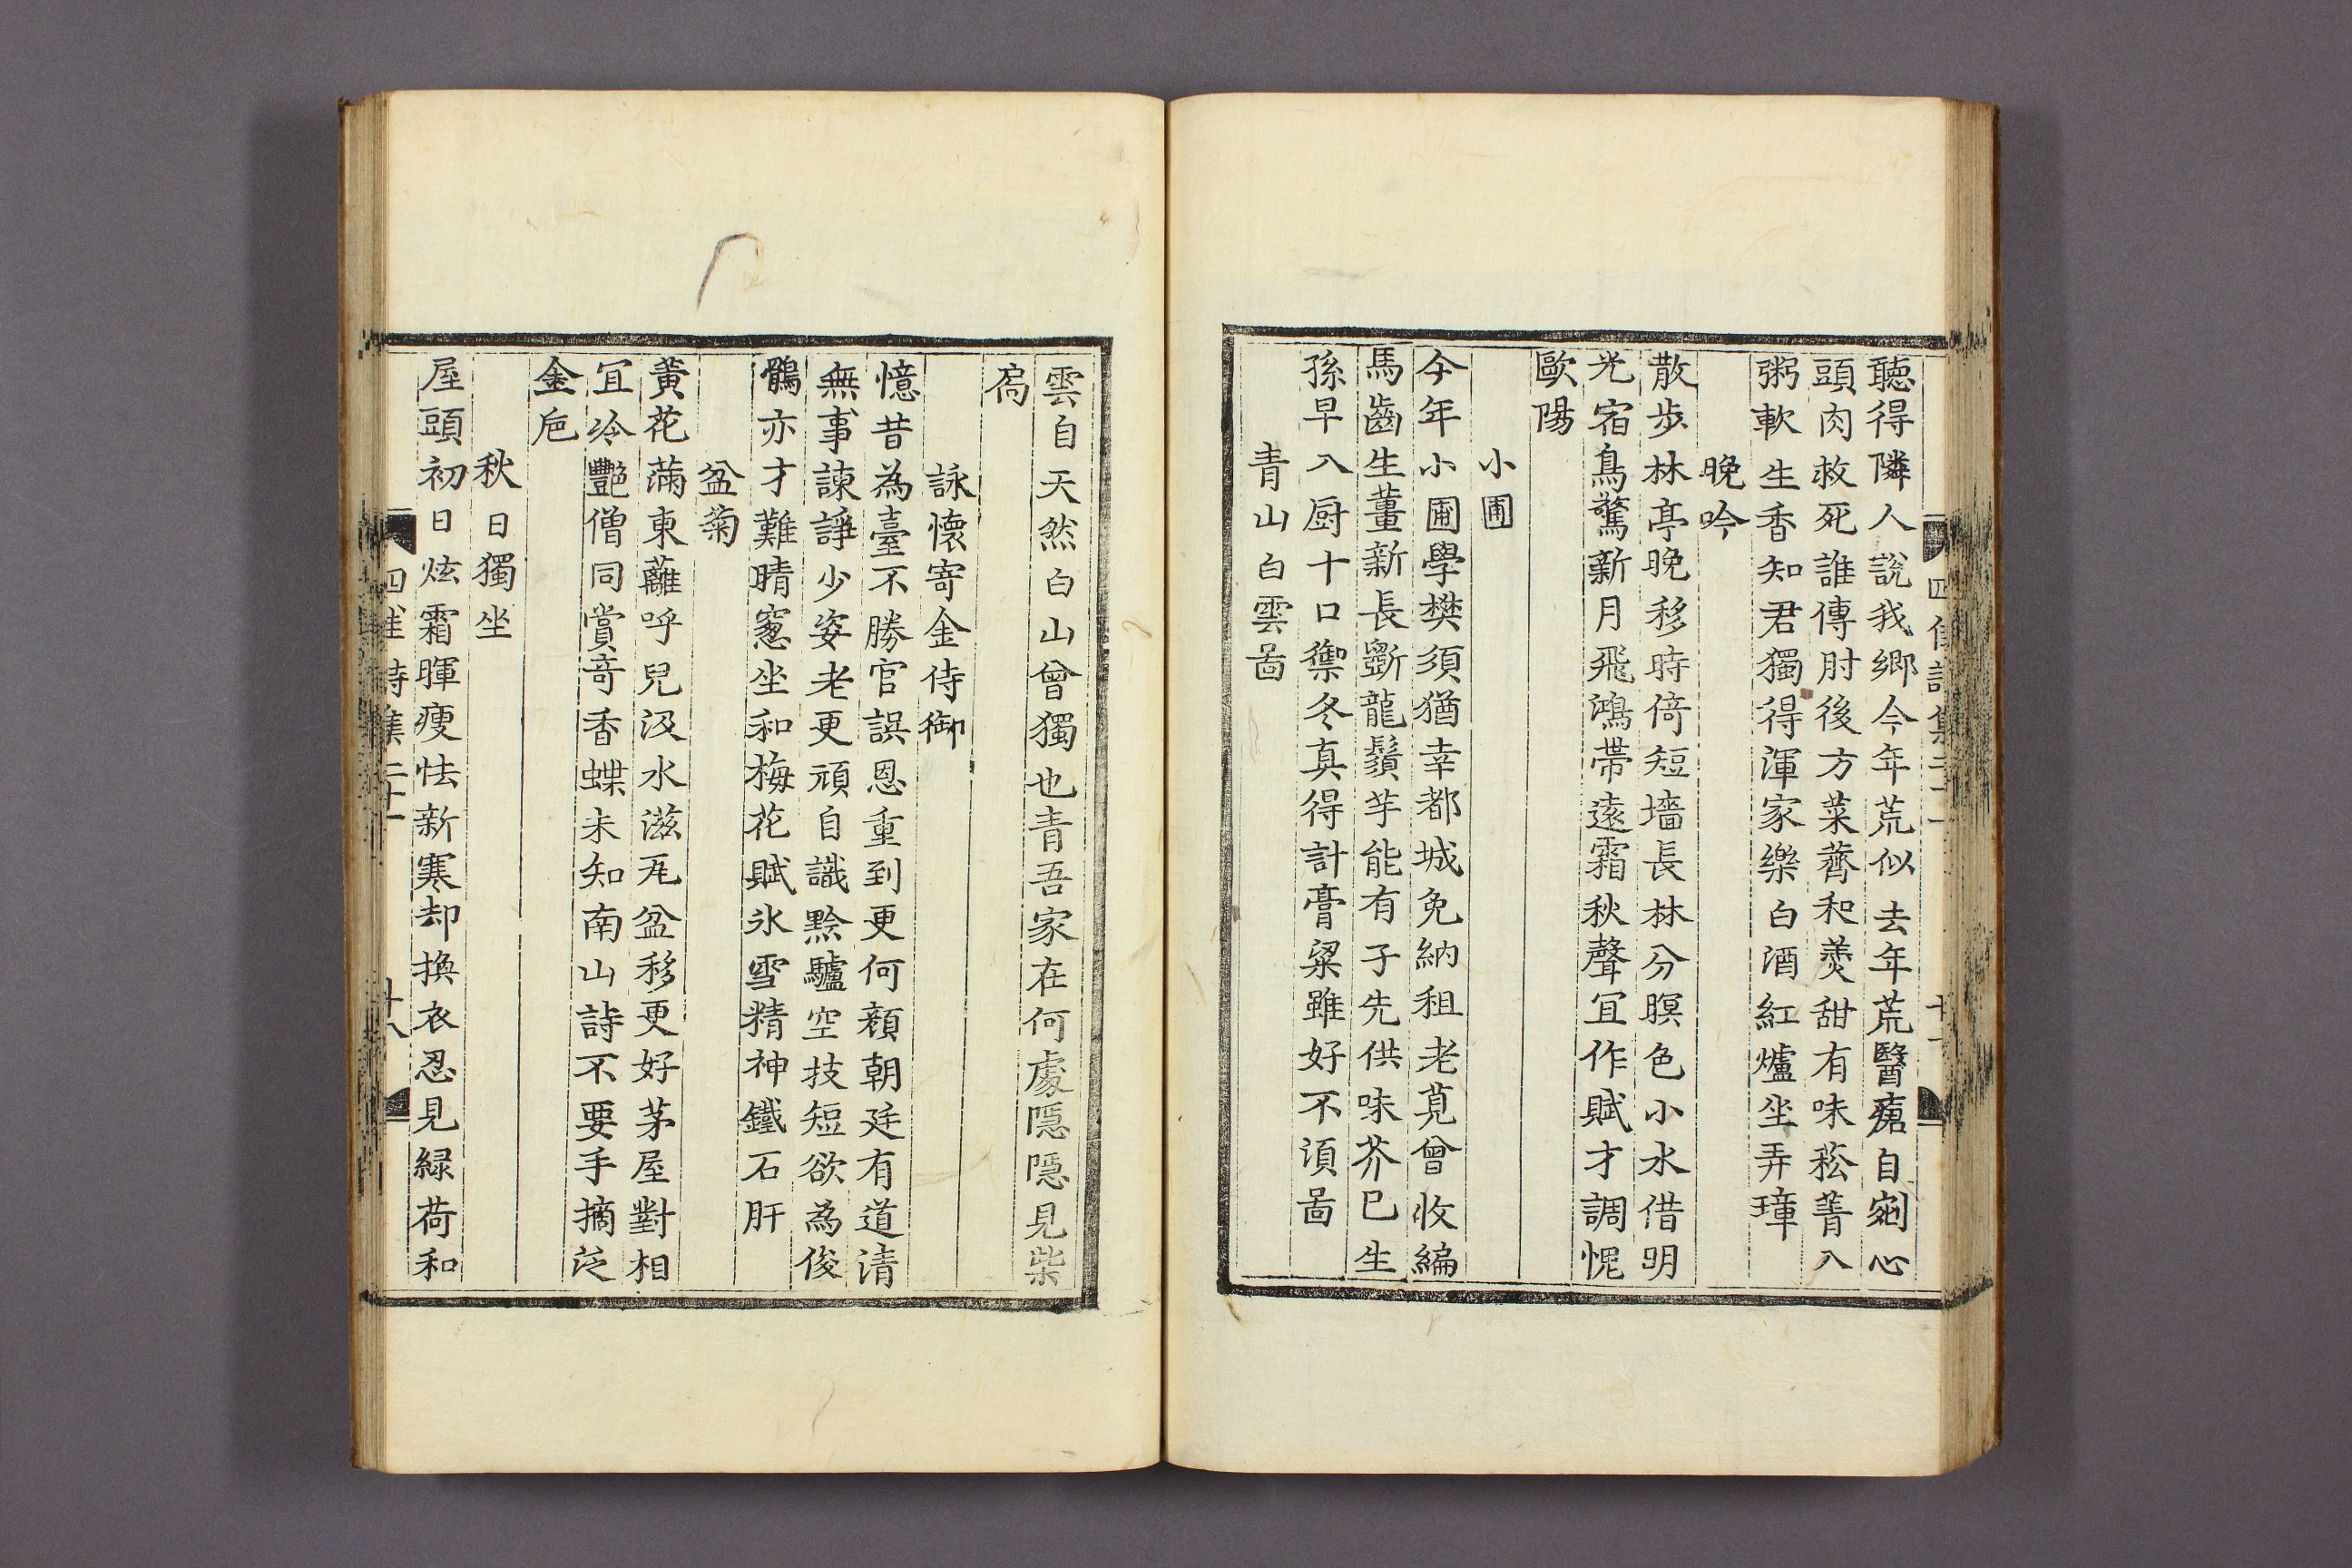 聽得隣人說我鄉今年荒似去年荒醫瘡自剜心
頭肉救死誰傳肘後方菜虀和羮甜有味菘菁入
粥軟生香知君獨得渾家樂白酒紅爐坐弄璋
晚吟
散步林亭晚移時倚短墻長林分暝色小水借明
光宿鳥驚新月飛鴻帶遠霜秋聲宜作賦才調愧
歐陽
小圃
今年小圃學樊須猶幸都城免納租老莧曾收編
馬齒生薑新長斵龍鬚芋能有子先供味芥已生
孫早入厨十口禦冬真得計膏粱雖好不須啚
青山白雲啚
雲自天然白山曾獨也青吾家在何處隱隱見柴
扄
詠懷寄金侍御
憶昔為臺不勝官誤恩重到更何顔朝廷有道清
無事諫諍少姿老更頑自識黔驢空技短欲為俊
鶻亦才難晴窻坐和梅花賦氷雪精神鐵石肝
盆菊
黃花滿東蘺呼兒汲水滋瓦盆移更好茅屋對相
冝冷艷僧同賞奇香蝶未知南山詩不要手摘泛
金巵
秋日獨坐
屋頭初日炫霜暉瘦怯新寒却換衣忍見綠荷和
四佳詩集二十一
十八